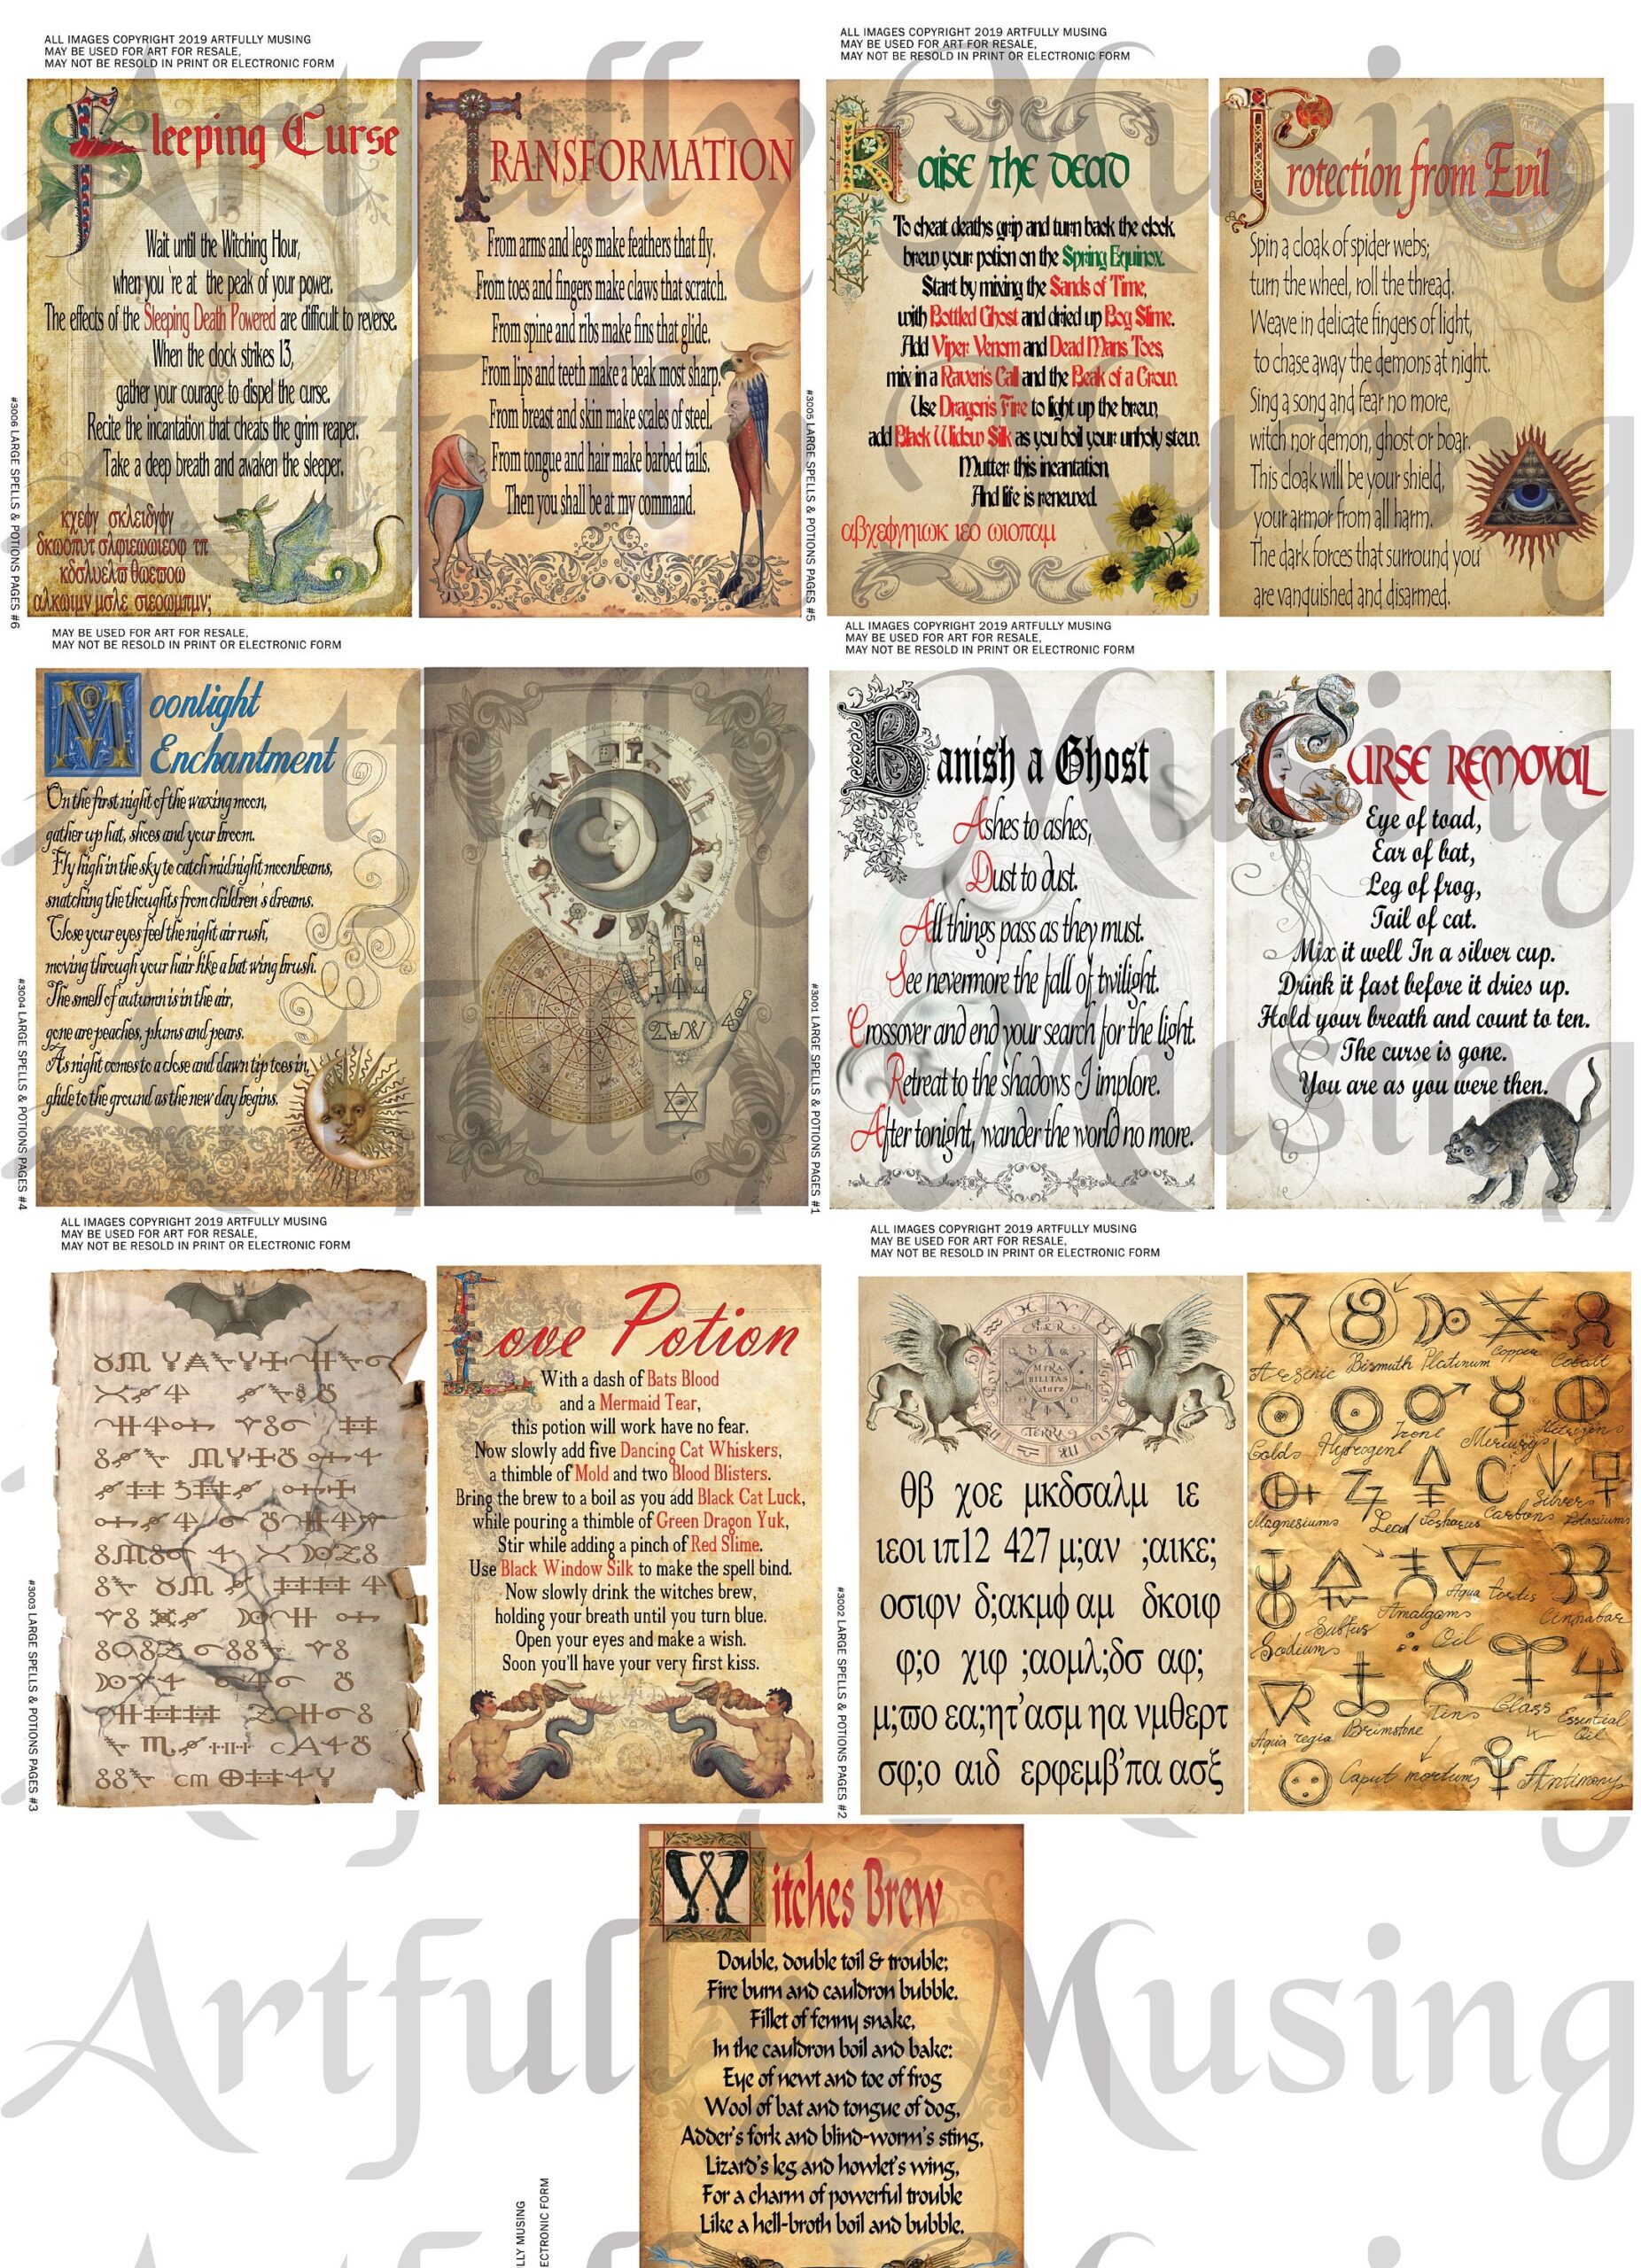 ALL IMAGES COPYRIGHT 2019 ARTFULLY MUSING
MAY BE USED FOR ART FOR RESALE,
MAY NOT BE RESOLD IN PRINT OR ELECTRONIC FORM
Sleeping Curse
Wait until the Witching Hour,
when you 're at the peak of your power.
The effects of the Sleeping Death Powered are difficult to reverse.
When the clock strikes 13,
gather your courage to dispel the curse.
Recite the incantation that cheats the grim reaper.
Take a deep breath and awaken the sleeper.
#3006 LARGE SPELLS & POTIONS PAGES #6
TRANSFORMATION
From arms and legs make feathers that fly.
From toes and fingers make claws that scratch.
From spine and ribs make fins that glide.
From lips and teeth make a beak most sharp.
From breast and skin make scales of steel.
From tongue and hair make barbed tails.
Then you shall be at my command.
#3005 LARGE SPELLS & POTIONS PAGES #5
ALL IMAGES COPYRIGHT 2019 ARTFULLY MUSING
MAY BE USED FOR ART FOR RESALE,
MAY NOT BE RESOLD IN PRINT OR ELECTRONIC FORM
Raise the Dead
To cheat deaths grip and turn back the clock,
brew your potion on the Spring Equinox.
Start by mixing the Sands of Time,
with Bottled Ghost and dried up Bog Slime.
Add Viper Venom and Dead Mans Toes,
mix in a Raven's Call and the Beak of a Crow.
Use Dragon's Fire to light up the brew,
add Black Widow Silk as you boil your unholy stew.
Mutter this incantation,
And life is renewed.
Protection from Evil
Spin a cloak of spider webs;
turn the wheel, roll the thread.
Weave in delicate fingers of light,
to chase away the demons at night.
Sing a song and fear no more,
witch nor demon, ghost or boar.
This cloak will be your shield,
your armor from all harm.
The dark forces that surround you
are vanquished and disarmed.
MAY BE USED FOR ART FOR RESALE,
MAY NOT BE RESOLD IN PRINT OR ELECTRONIC FORM
Moonlight
Enchantment
On the first night of the waxing moon,
gather up hat, shoes and your broom.
Fly high in the sky to catch midnight moonbeams,
snatching the thoughts from children's dreams.
Close your eyes feel the night air rush,
moving through your hair like a bat wing brush.
The smell of autumn is in the air,
gone are peaches, plums and pears.
As night comes to a close and dawn tip toes in,
glide to the ground as the new day begins.
#3004 LARGE SPELLS & POTIONS PAGES #4
ALL IMAGES COPYRIGHT 2019 ARTFULLY MUSING
MAY BE USED FOR ART FOR RESALE,
MAY NOT BE RESOLD IN PRINT OR ELECTRONIC FORM
Banish a Ghost
Ashes to ashes,
Dust to dust.
All things pass as they must.
See nevermore the fall of twilight.
Crossover and end your search for the light.
Retreat to the shadows I implore.
After tonight, wander the world no more.
#3001 LARGE SPELLS & POTIONS PAGES #1
CURSE REMOVAL
Eye of toad,
Ear of bat,
Leg of frog,
Tail of cat.
Mix it well In a silver cup.
Drink it fast before it dries up.
Hold your breath and count to ten.
The curse is gone.
You are as you were then.
ALL IMAGES COPYRIGHT 2019 ARTFULLY MUSING
MAY BE USED FOR ART FOR RESALE,
MAY NOT BE RESOLD IN PRINT OR ELECTRONIC FORM
#3003 LARGE SPELLS & POTIONS PAGES #3
Love Potion
With a dash of Bats Blood
and a Mermaid Tear,
this potion will work have no fear.
Now slowly add five Dancing Cat Whiskers,
a thimble of Mold and two Blood Blisters.
Bring the brew to a boil as you add Black Cat Luck,
while pouring a thimble of Green Dragon Yuk,
Stir while adding a pinch of Red Slime.
Use Black Window Silk to make the spell bind.
Now slowly drink the witches brew,
holding your breath until you turn blue.
Open your eyes and make a wish.
Soon you'll have your very first kiss.
ALL IMAGES COPYRIGHT 2019 ARTFULLY MUSING
MAY BE USED FOR ART FOR RESALE,
MAY NOT BE RESOLD IN PRINT OR ELECTRONIC FORM
MIRA
BILITAS
Naturæ
TERRA
θβ χοε μκδσαλμ ιε
ιεοι ιπ12 427 μ;αν ;αικε;
οσιφν δ;ακμφ αμ δκοιφ
φ;ο χιφ ;αομλ;δσ αφ;
μ;ϖο εα;ητ'ασμ ηα νμθερτ
σφ;ο αιδ ερφεμβ'πα ασξ
#3002 LARGE SPELLS & POTIONS PAGES #2
Arsenic Bismuth Platinum Copper Cobalt
Gold Hydrogen Iron Mercury Nitrogen
Magnesium Lead Carbon Silver Potassium
Sodium Amalgam Aqua Cinnabar
Oil
Aqua regia Brimstone Tin Glass Essential
Oil
Caput mortum Antimony
Witches Brew
Double, double toil & trouble;
Fire burn and cauldron bubble.
Fillet of fenny snake,
In the cauldron boil and bake:
Eye of newt and toe of frog
Wool of bat and tongue of dog,
Adder's fork and blind-worm's sting,
Lizard's leg and howlet's wing,
For a charm of powerful trouble
Like a hell-broth boil and bubble.
LLY MUSING
ECTRONIC FORM
Artfully Musing
Artfully Musing
Artfully Musing
Artfully Musing